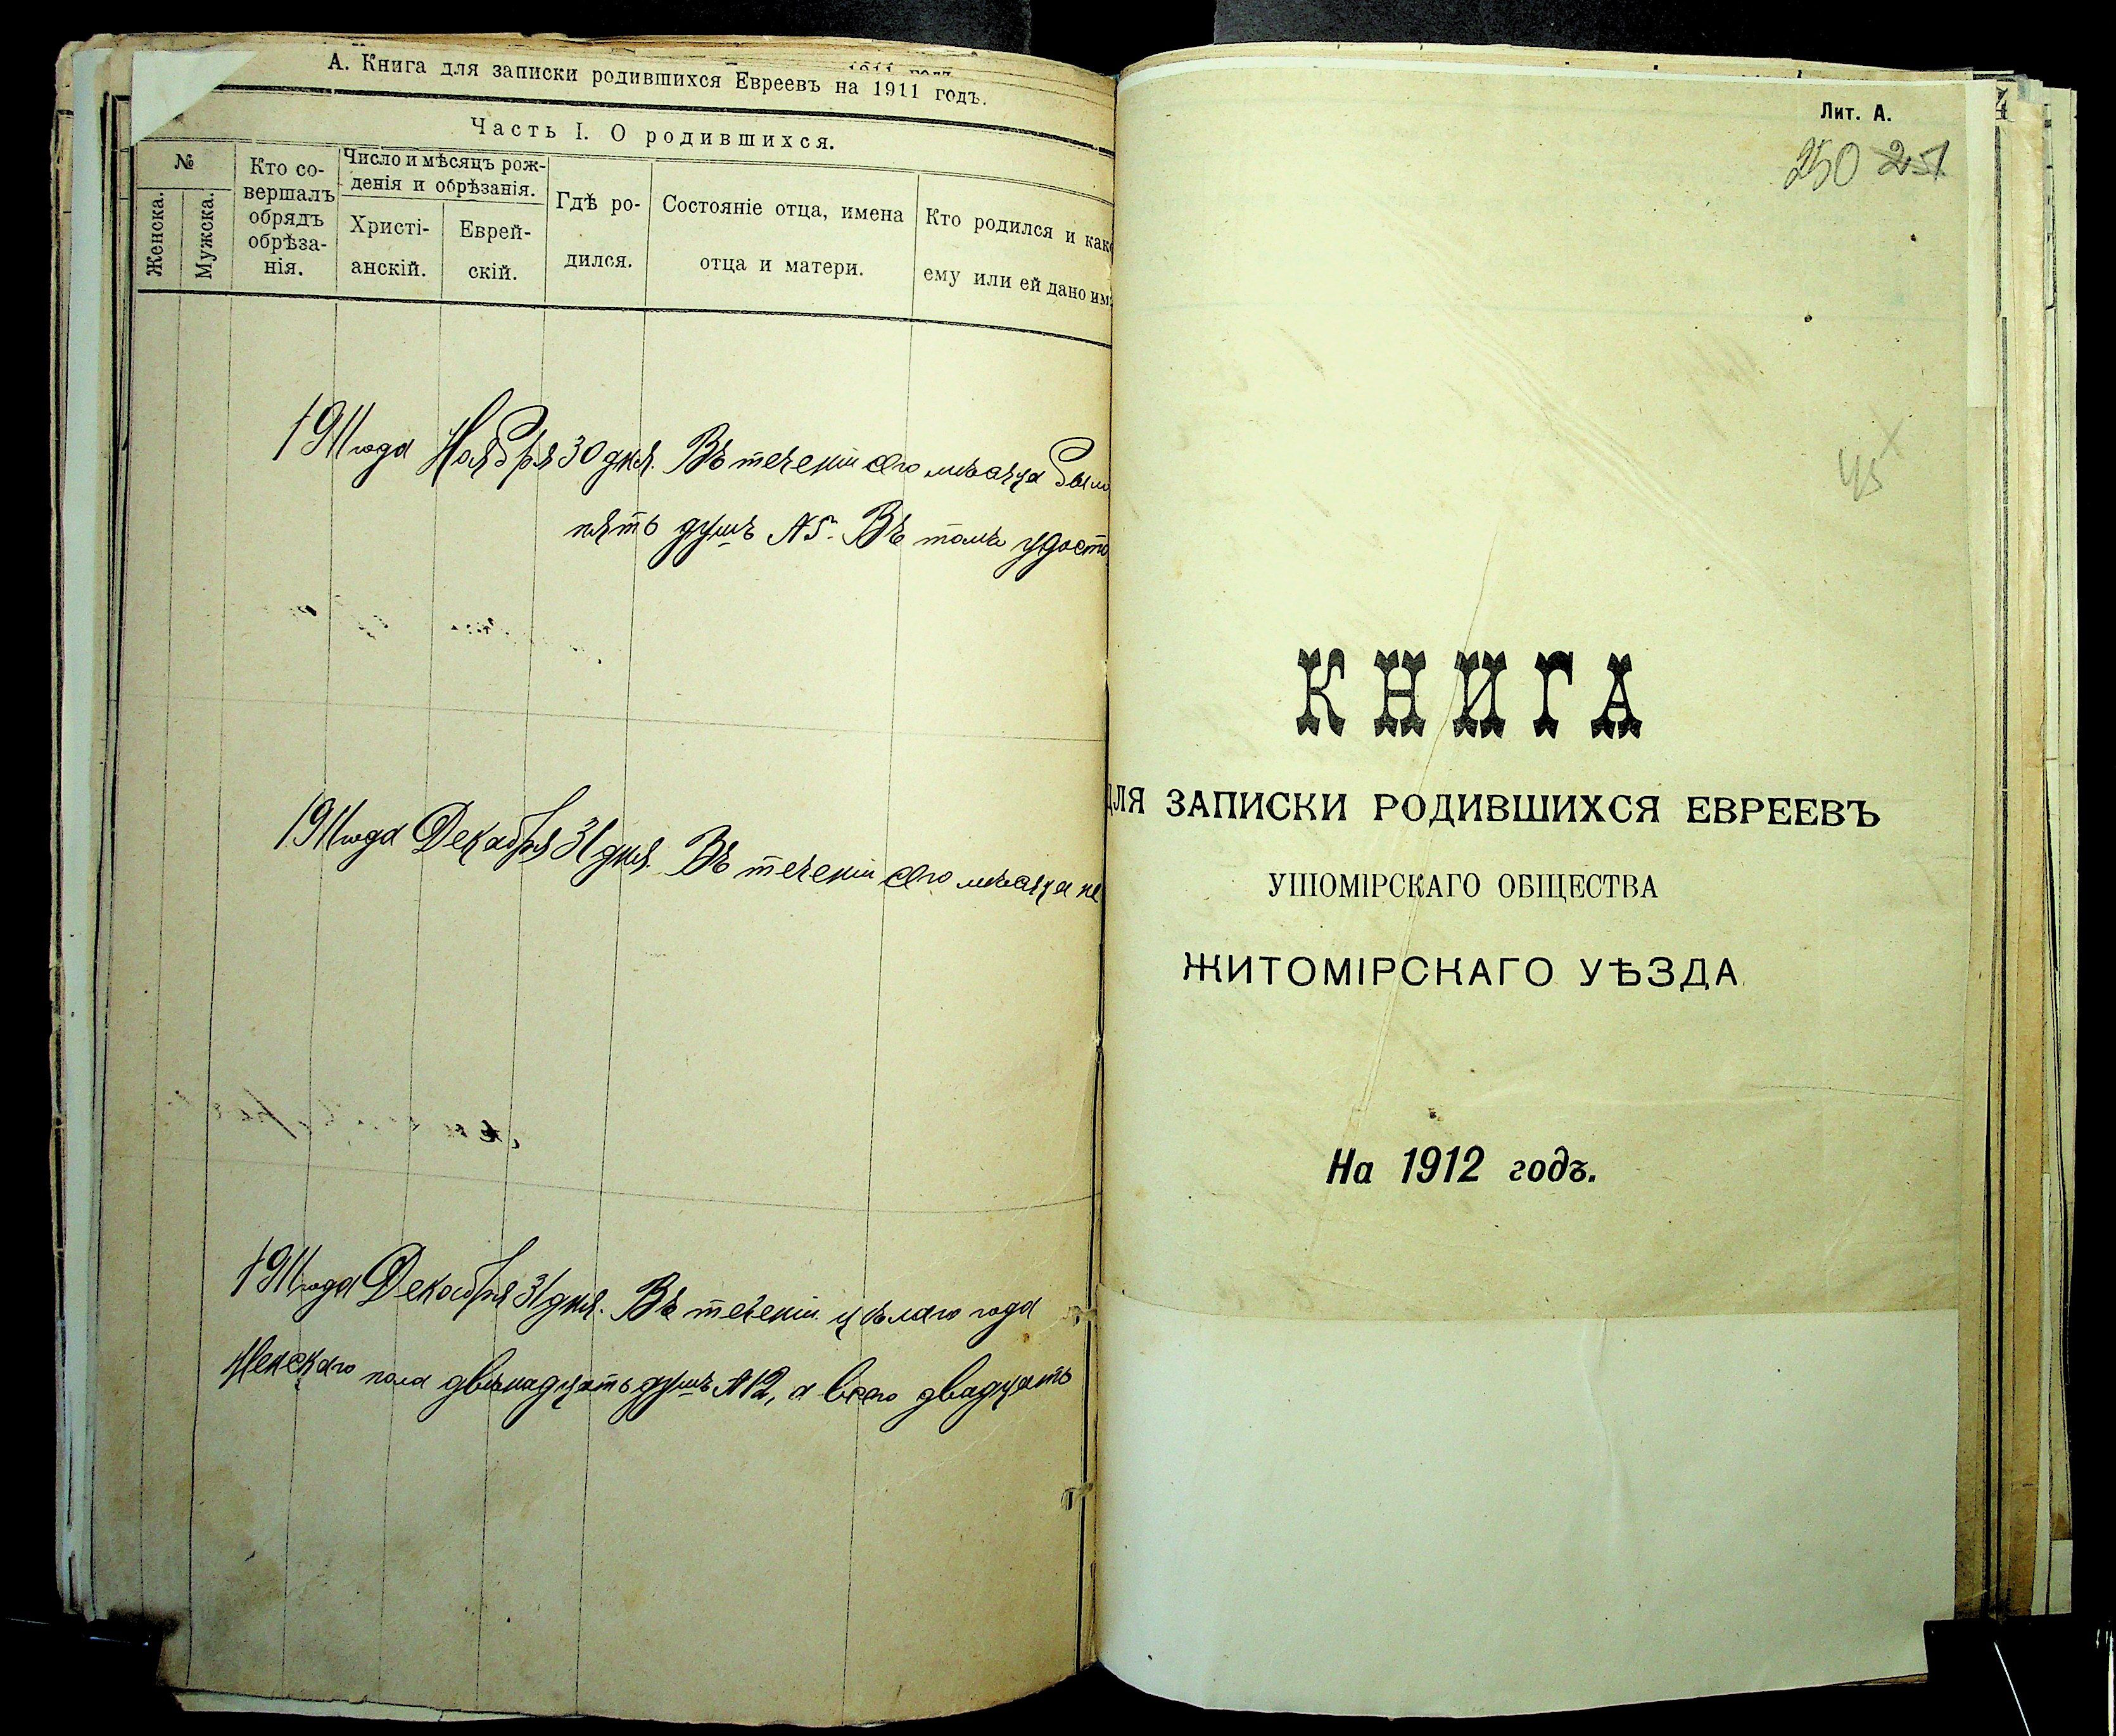 А. Книга для записки родившихся Евреевъ на 1911 годъ.
Часть I. О родившихся.
№
Женска.
Мужска.
Кто со-
вершалъ
обрядъ
обрѣза-
нія.
Число и мѣсяцъ рож-
денія и обрѣзанія.
Христі-
анскій.
Еврей-
скій.
Гдѣ ро-
дился.
Состояніе отца, имена
отца и матери.
Кто родился и како
ему или ей дано им
1911 года Ноября 30 дня. Въ теченіи сего мѣсяца было
пять душъ №5. Въ томъ удосто
1911 года Декабря 31 дня. Въ теченіи сего мѣсяца не
1911 года Декабря 31 дня. Въ теченіи цѣлаго года
женскаго пола двѣнадцать душъ №12, а всего двадцать
Лит. А.
250 251
45
КНИГА
ДЛЯ ЗАПИСКИ РОДИВШИХСЯ ЕВРЕЕВЪ
УШОМІРСКАГО ОБЩЕСТВА
ЖИТОМІРСКАГО УѢЗДА.
На 1912 годъ.